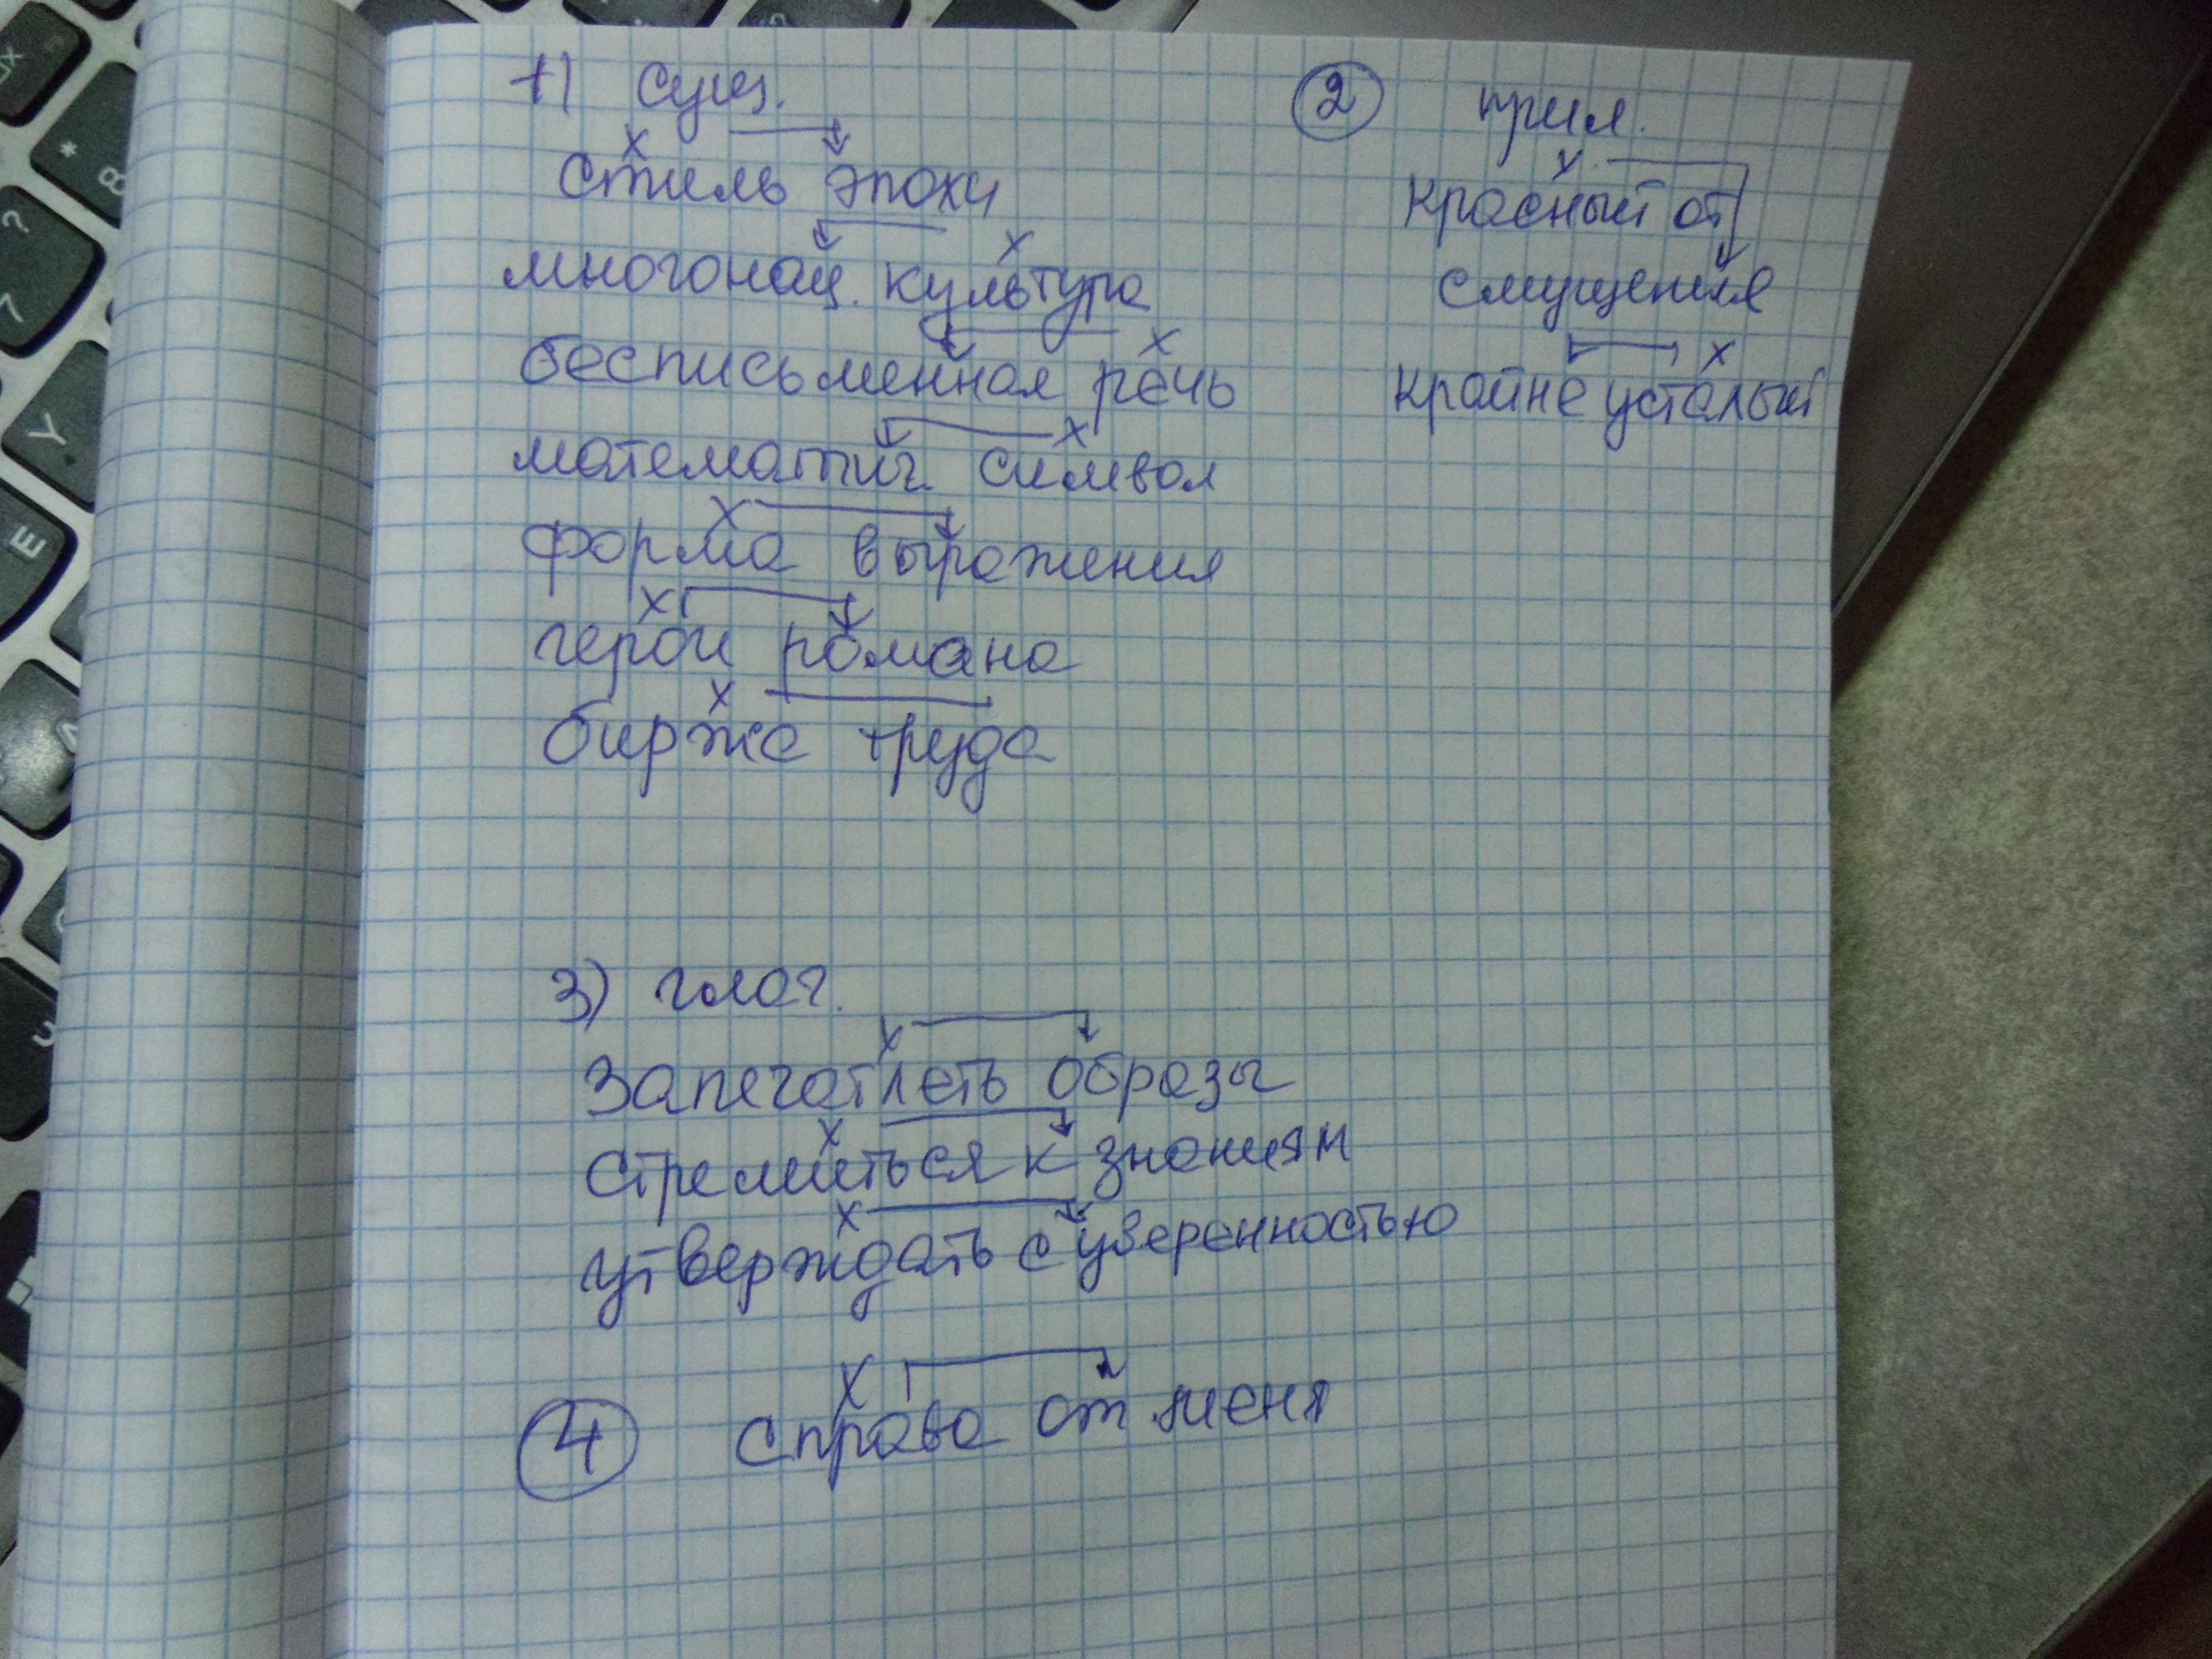 1) Сущ.
стиль эпохи
многонац. культура
бесписьменная речь
математич. символ
форма выражения
герои романа
биржа труда
2 прил.
красный от
смущения
крайне усталый
3) глаг.
запечатлеть образы
стремиться к знаниям
утверждать с уверенностью
4 справа от меня